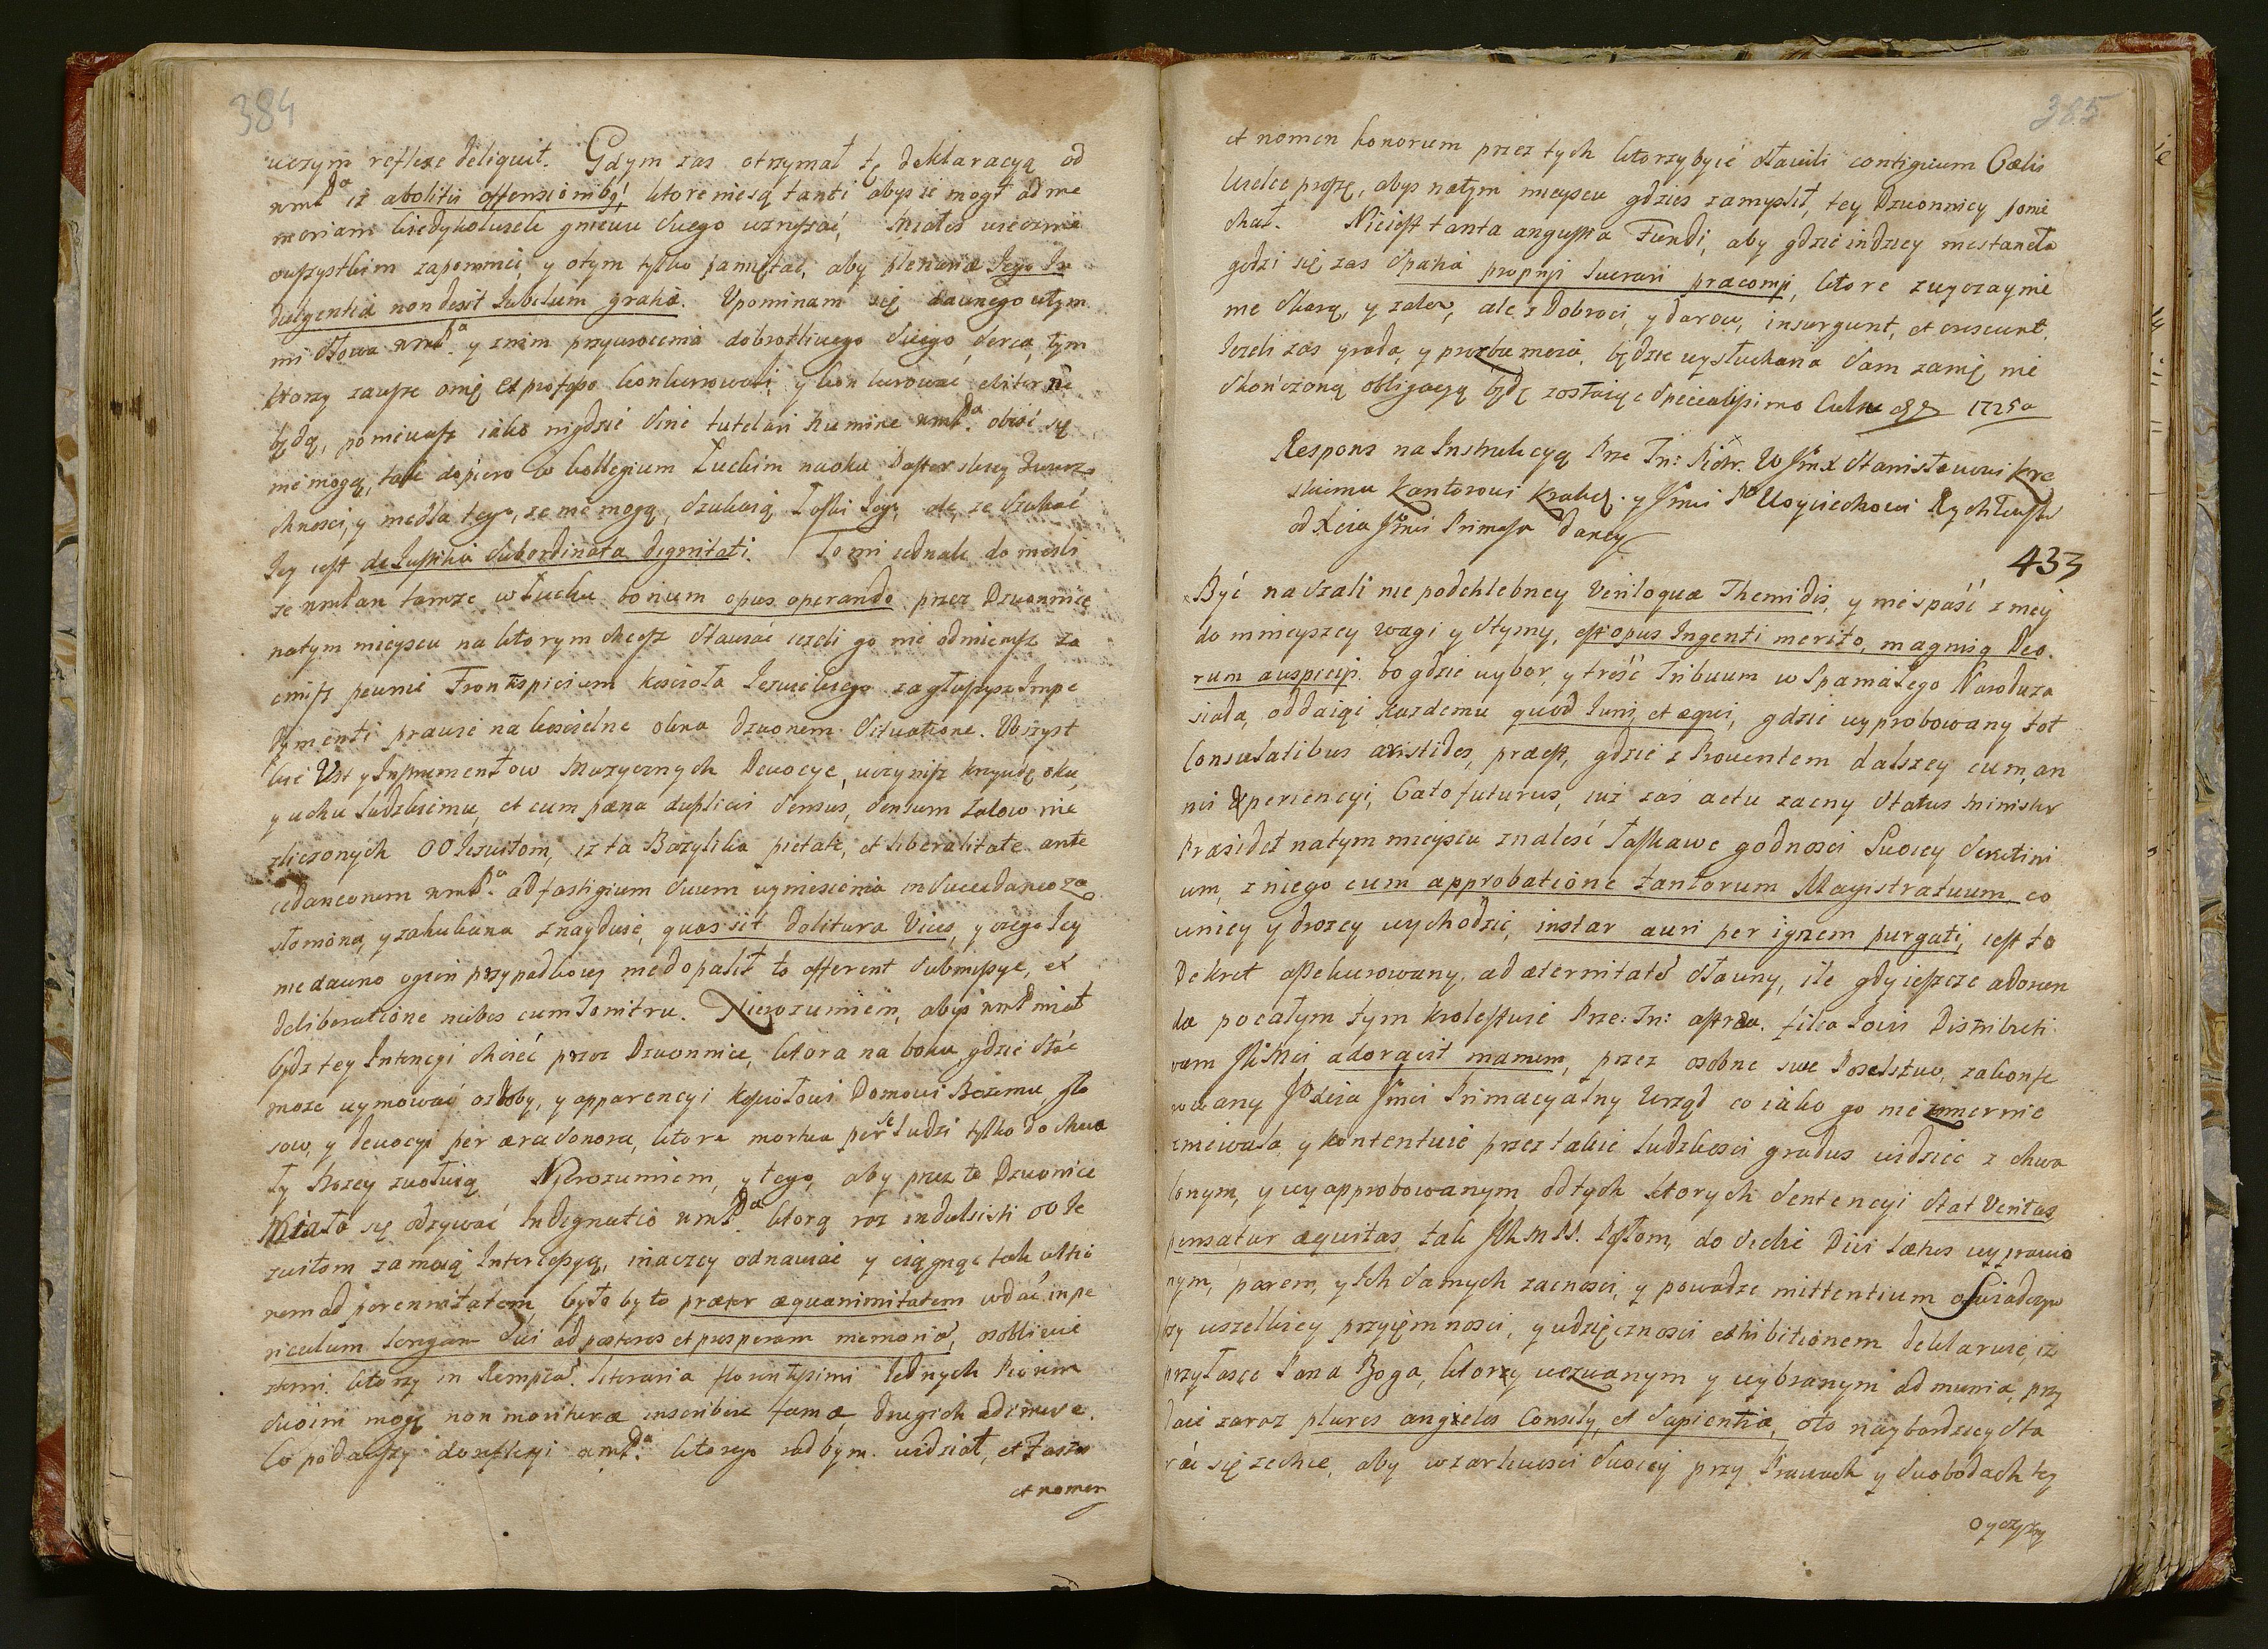 384
uczym reflexe deliquit. Gdym zas otrzymał tę deklaracyą od
wmPa iż abolitis offensionibq; ktore niesą tanti abyś ie mogł ad me
moriam kiedykolwiek gniewu swego wzruszać, miałeś wiecznie
wszystkim zapomnieć, y otym tylko pamiętać, aby plenariæ Jego In
dulgentiæ non desit Iubilum gratiæ. Upominam się dawnego wtym
mi słowa wmPa. y znim przywrocenia dobrotliwego swego serca, tym
ktorzy zawsze onię ex professo konkurowali, y konkurować
będą, poniewasz iako nigdzie sine tutelari Numine wmPa. obeść się
nie mogą, tak dopiero w kollegium Łuckim naoku Pasterskiey
chności, y niedla tego, ze nie mogą, szukaią Łaski Jego, ale ze szukać
Jey iest de Iustitia subordinata dignitati. To mi iednak do
ze wmPan tamze w Łucku bonum opus operando przez Dzwonnicę
natym mieyscu na ktorym chcesz stawiać iezeli go nie odmienisz za
cmisz pewnie Frontispicium kościoła Jezuickiego zagłuszysz Impe
dymenti prawie na kościelne okna dzwonem situatione. Wszyst
kie Vot y Instrumentow Muzycznych Dewocye, uczynisz krzywdę oku,
y uchu ludzkiemu, et cum pæna duplicis sensus, sensum żalow nie
zliczonych OO Jezuitom, iz ta Bazylika pietate, et liberalitate ante
cedaneorum wmPa. ad fastigium suum wyniesienia insuccedaneo za
słomona, y zahukana znayduie, quas sit dolitura Vices, y czego Jey
nie dawno ogień przypadkowy niedopalił to offerent submissye, ex
deliberatione nubes cum Tonitru. Nierozumiem, abyś wmP miał
bydz tey Intencyi chcieć przez Dzwonnicę, ktora na boku gdzie stać
moze uymować ozdoby, y apparencyi kościołowi Domowi Bozemu, Gło
sow, y dewocyi per æra sonora, ktore mortua per se Ludzi tylko do chwa
ły Bozey zwołuią. Nierozumiem, y tego, aby przez te Dzwonice
Miała się odzywać Indignatio wmPa ktorą raz indulsisti OO Je
zuitom zamoią Intercessyą, inaczey odnawiać y ciągnąć tak ultio
nem ad perennitatem było by to præter æquanimitatem wdać in pe
riculum longam sui ad posteros et prosperam memoriā, osobliwie
ztemi ktorzy in Rempcā literaria florentissimi Jednych Piorem
swoim mogą non morituræ inscribere famæ, drugich adimere.
Co podawszy do reflexyi wmPa. ktorego radbym widział, et Fastos
et nomen
385
et nomen honorum przez tych ktorzy być stawili contiguum Cælis
wielce proszę, abyś natym mieyscu gdzieś zamyslił, tey Dzwonnicy ponie
chał. Nieiest tanta angustia Fundi, aby gdzieindziey niestaneła
godzi się zas spatia proprijs lucrari præconijs, ktore zwyczaynie
nie skazą, y zalem, ale z Dobroci, y darow, insurgunt, et crescunt.
Jezeli zas grata, y prozba moia będzie wysłuchana Sam zanię nie
skończoną obligacyą będę zostaiąc speciatissimo Cultu &c 1725o
Respons na Instrukcyą Prze Tn: Piotr. W JmX Stanisławowi Kre
skiemu Kantorowi Krakq. y Jmci Po Woyciechowi Rychłowsk
od Xcia Jmci Primasa dany
433
Być na szali nie podchlebney Veriloquæ Themidis, y niespaść zniey
do mnieyszey wagi y estymy, est opus Ingenti merito, magnisq Deo
rum auspicijs. bo gdzie wybor, y treść Tribuum w spaniałego Narodu za
siada, oddaiąc kazdemu quod Iuris et æqui, gdzie wyprobowany tot
Consulatibus Aristides, præest, gdzie z Prouentem dalszey cum an
nis Experiencyi, Cato futurus, iuz zaś actu zacny Status Minister
Præsidet natym mieyscu znaleść łaskawe godnosci Swoiey scrutini
um, z niego cum approbatione tantorum Magistratuum co
wniey y drozey wychodzić, instar auri per ignem purgati, iest to
Dekret assekurowany, ad æternitatē sławny, ile gdy ieszcze adoran
da pocałym tym krolestwie Prze: Tn: astræa. filea Iovis Distributi
vam JkMci adoravit manum, przez osobne swe Poselstwo, zakonse
rwany JOXcia Jmci Primacyalny Urząd co iako go niezmiernie
zniewala y kontentuie przez takie ludzkosci gradus widzieć z chwa
lonym, y wyapprobowanym od tych ktorych sentencyi stat Veritas,
pensatur æquitas, tak JkMM. Posłom, do siebie Dici lætus wyprawio
nym, parem, y Ich samych zacnosci, y powadze mittentium oświadczyw
szy wszelkiey przyięmnosci, y wdzięcznosci exhibitionem deklaruie, iż
przyłasce Pana Boga, ktory wezwanym y wybranym ad munia, przy
daie zaraz plures angelos Consily, et Sapientiæ, oto naybardziey sta
rać się zechce, aby w zarliwosci swoiey przy Prawach y swobodach tey
oyczyzny